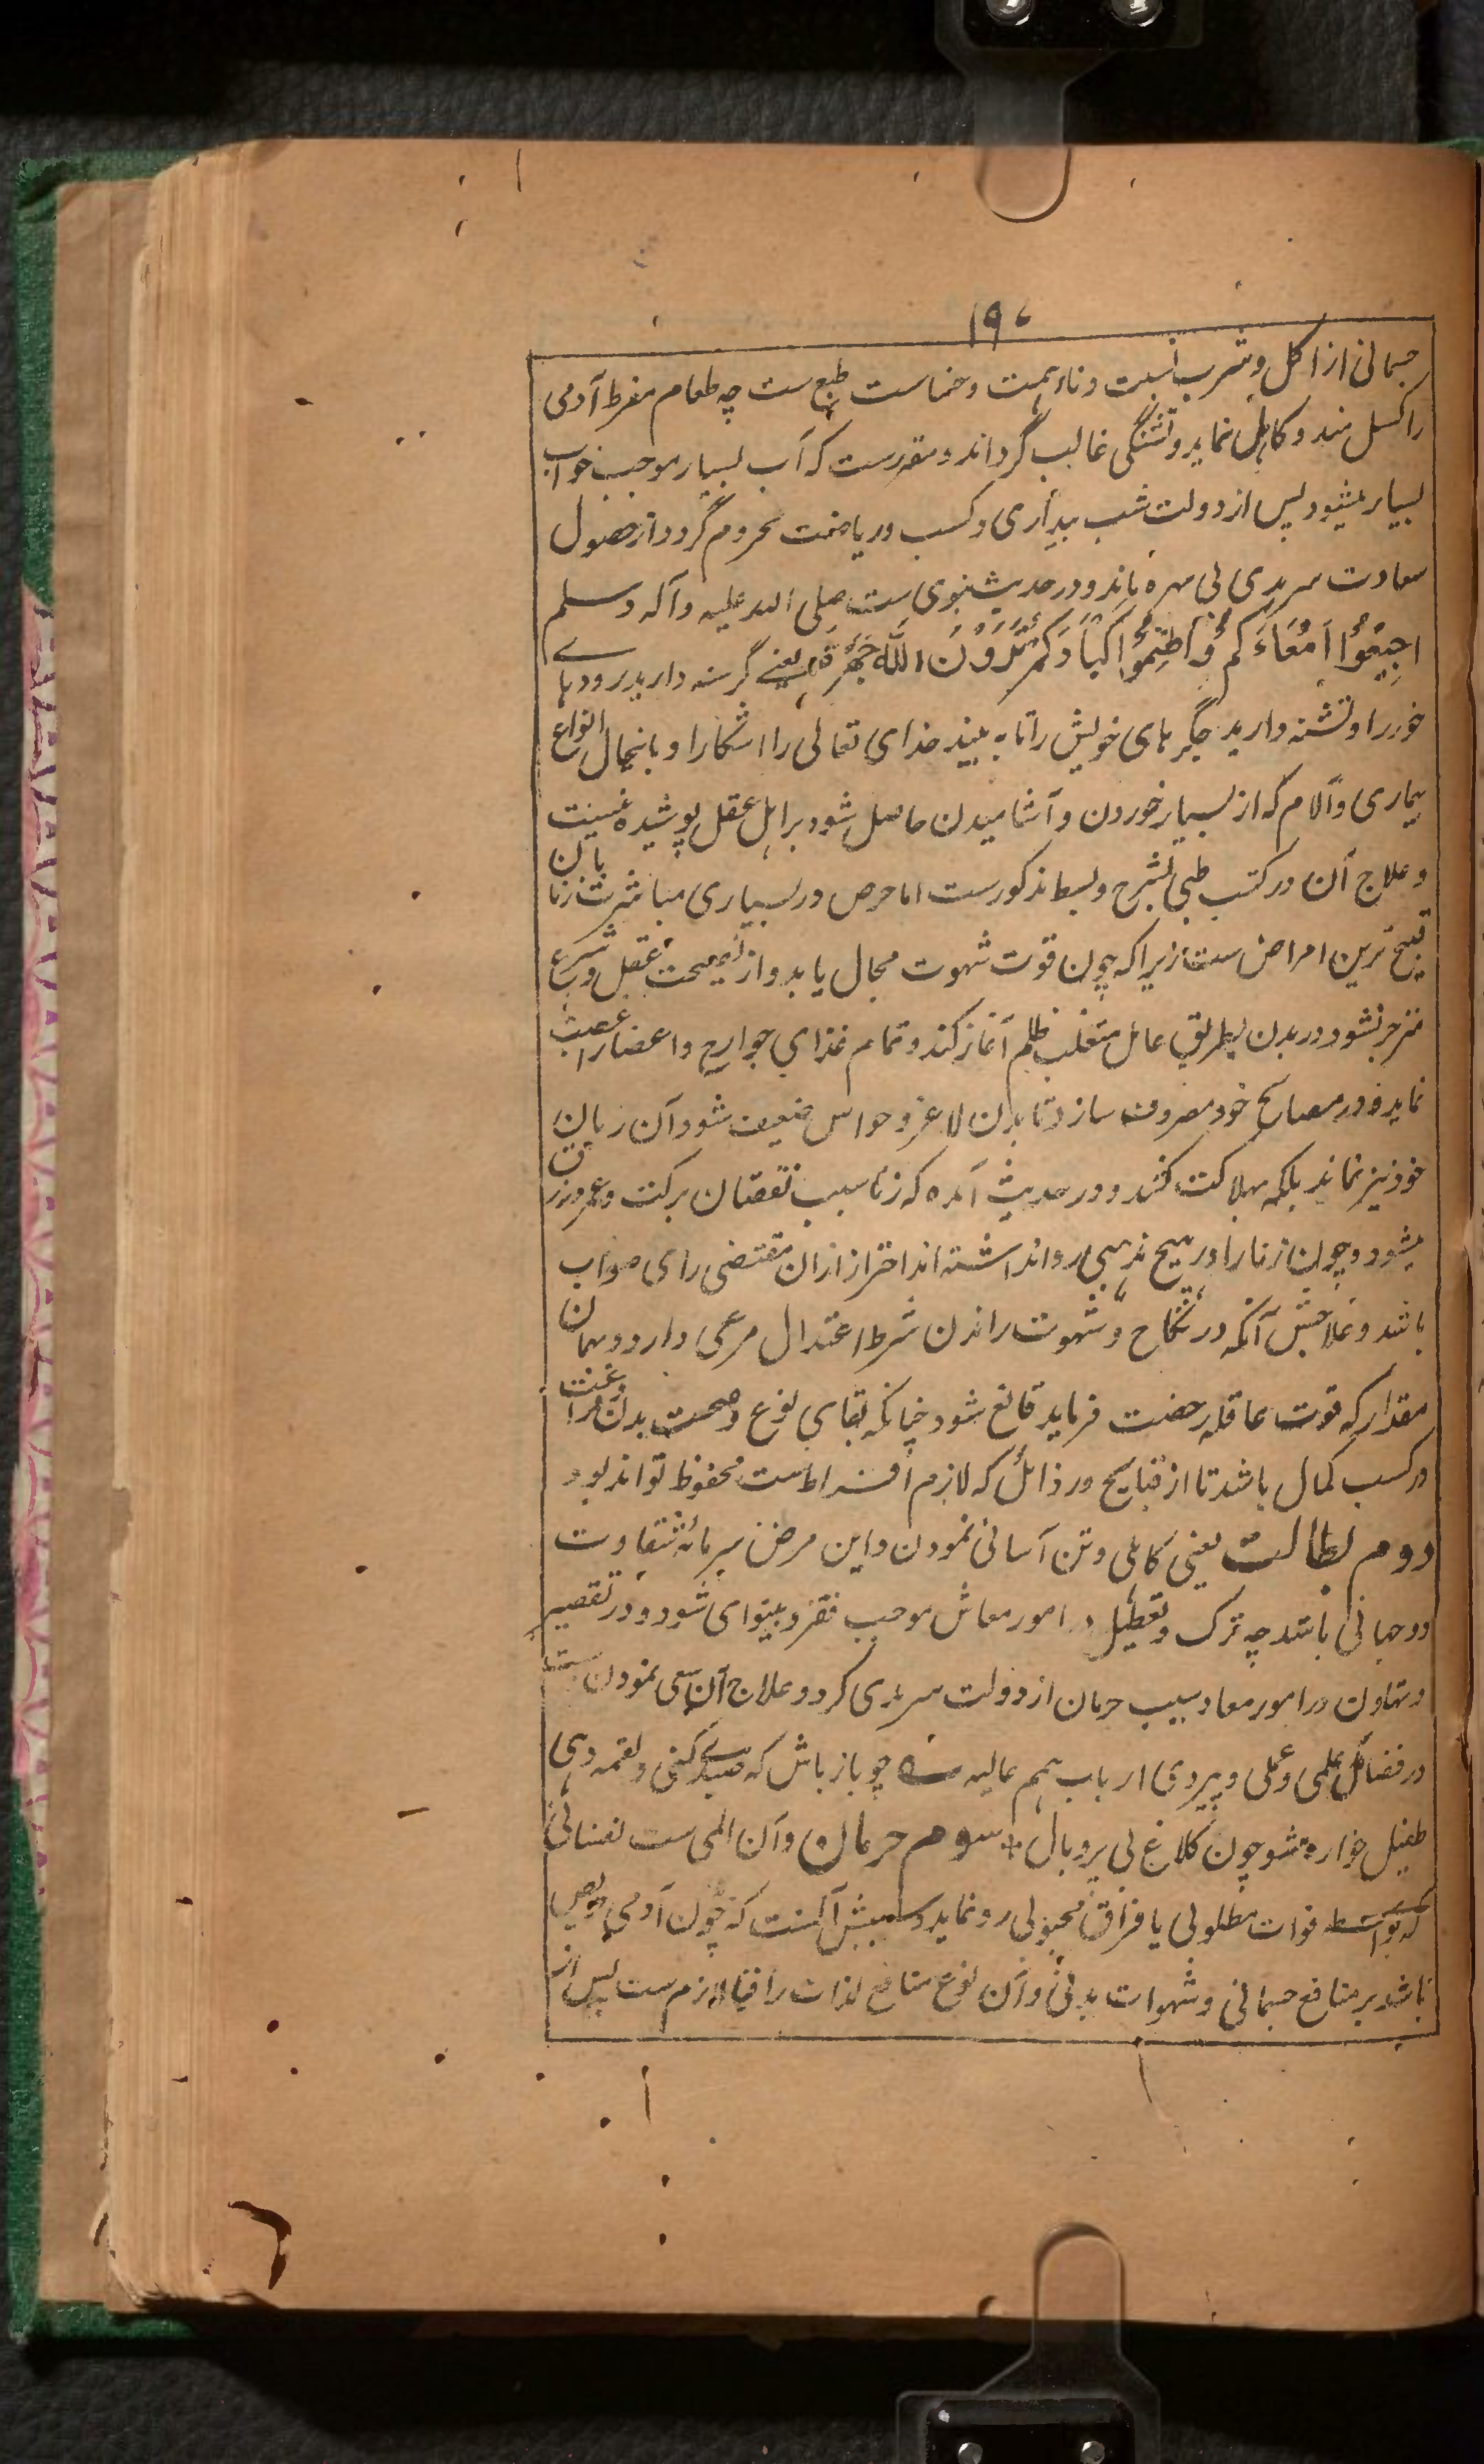 ۱۹۰
جسمانی از اکل و شرب نسبت دناءت همت و خساست طبع ست چه طعام مفرط آدمی
را کسل مند و کاهل نماید و تشنگی غالب گرداند و مقررست که آب بسیار موجب خواب
بسیار میشود پس از دولت شب بیداری و کسب و ریاضت محروم گردد و از حصول
سعادت سرمدی بی بهره ماند و در حدیث نبوی ست صلی الله علیه و آله وسلم
اَجِیْعُوْا اَمْعَاءَكُمْ وَاَظْمِئُوْا اَكْبَادَكُمْ تَرَوْنَ اللّٰهَ جَهْرَةً یعنے گرسنه دارید رودهاے
خود را و تشنه دارید جگرهای خویش را تا به بیند خدای تعالی را آشکارا و با نحال انواع
بیماری و آلام که از بسیار خوردن و آشامیدن حاصل شود بر اهل عقل پوشیده نیست
و علاج آن در کتب طبی بشرح و بسط مذکورست اما حرص در بسیاری مباشرت با زنان
قبیح ترین امراض ست زیرا که چون قوت شهوت مجال یابد و از نصیحت عقل و شرع
منزجر نشود در بدن بطریق عامل متغلب ظلم آغاز کند و تمام غذای جوارح و اعضا را غصب
نماید و در مصالح خود مصروف سازد تا بدن لاغر و حواس ضعیف شود آن زمان
خود نیز نماند بلکه هلاکت کشد و در حدیث آمده که زنا سبب نقصان برکت و عمر و رزق
میشود و چون زنا را در هیچ مذهبی روا نداشته اند احتراز ازان مقتضی رای صواب
باشد و علاجش آنکه در نکاح و شهوت راندن شرط اعتدال مرعی دارد و بهمان
مقدار که قوت عاقله رخصت فرماید قانع شود چنانکه بقای نوع و صحت بدن را رغبت
در کسب کمال باشد تا از قبایح و رذائل که لازم افراط ست محفوظ تواند بود
دوم بطالت یعنی کاهلی و تن آسانی نمودن و این مرض سرمایه شقاوت
دوجهانی باشد چه ترک و تعطیل در امور معاش موجب فقر و بینوای شود و در تقصیر
و تهاون در امور معاد سبب حرمان از دولت سرمدی گردد و علاج آن سعی نمودن ست
در فضائل علمی و عملی و پیروی ارباب همم عالیه ؎ چو باز باش که صیدے کنی و لقمه دهی
طفیل خواره مشو چون کلاغ بی پر و بال + سوم حرمان و آن المی ست نفسانی
که بواسطه فوات مطلوبی یا فراق محبوبی رو نماید و سببش آنست که چون آدمی حریص
باشد بر منافع جسمانی و شهوات بدنی و آن نوع منافع لذات را فنا لازم ست پس از